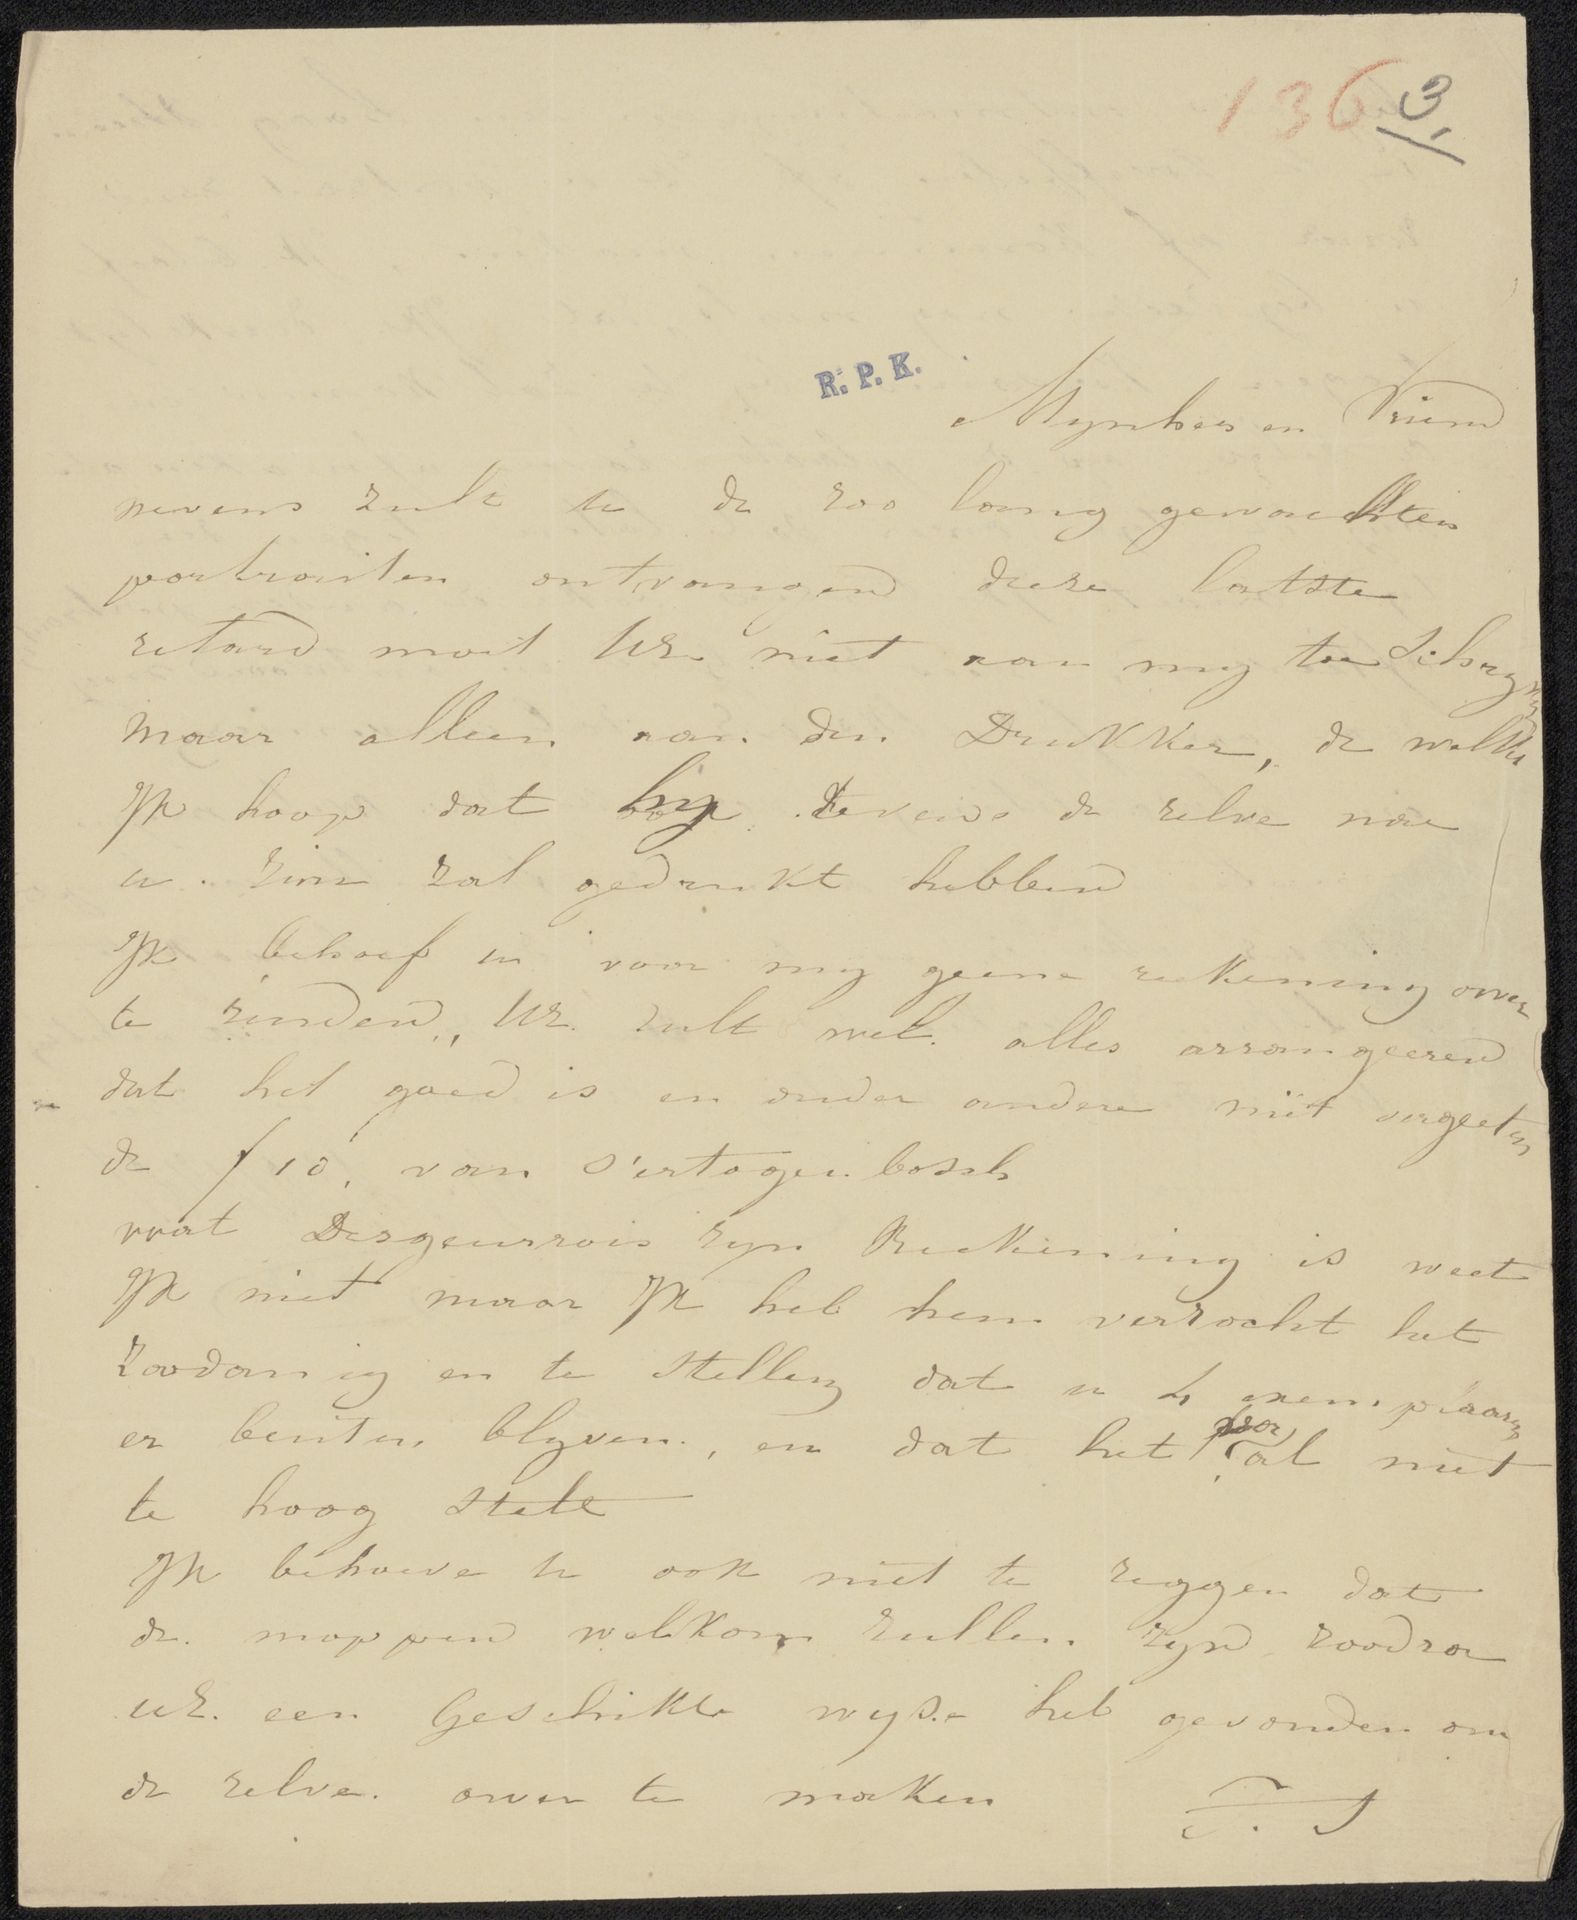 136 3
R. P. K.
Mynheer en Vriend
nevens zult u de zoo lang gewachten
portraiten ontvangend deze latste
retard moet UE niet aan my toe Schryven
maar alleen aan den Drukker, de welke
Ik hoop dat hy tevens de zelve nae
u. zinn zal gedrukt hebbend
Ik behoef u voor my geene rekening over
te zendend, UE. zult wel alles arrangeerend
dat het goed is en onder andere niet vergeeten
de f 10, van S'ertogenbosch
wat Desguerrois zyn Reekining is weet
Ik niet maar Ik heb hem verzocht het
zoodanig en te stellen dat u 4 exemplaaren
er buiten blyven, en dat het voor al niet
te hoog stelt
Ik behoeve u ook niet te zeggen dat
de mappend welkom zullen zynd zoodra
UE. een Geschikte wyse heb gevonden om
de zelve over te maken